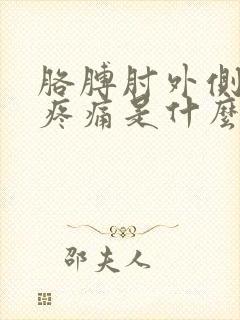 胳膊肘外侧
疼痛是什麼
邵夫人